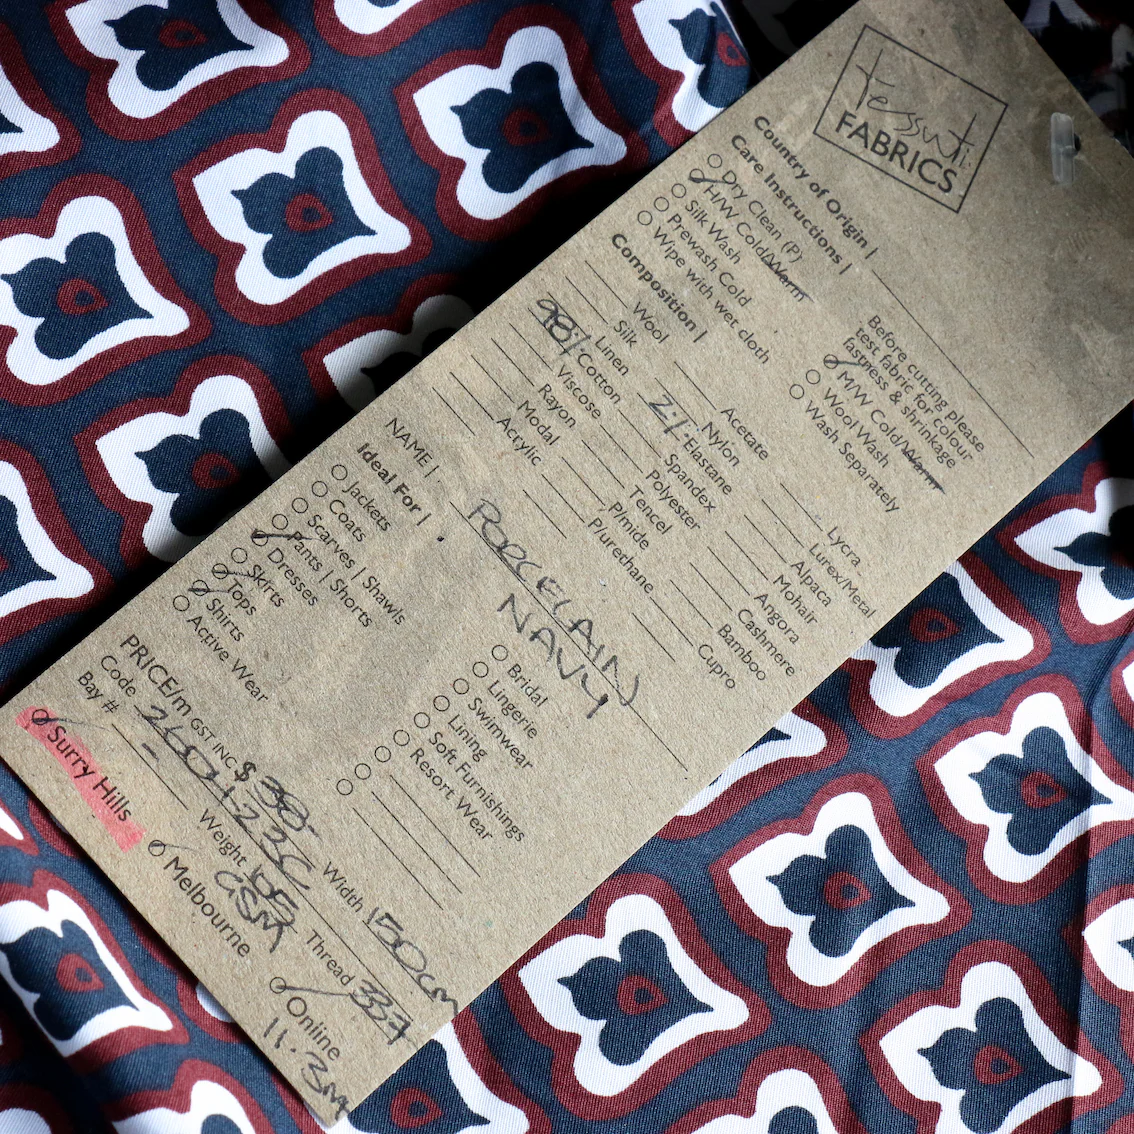 Tessuti
FABRICS
Country of Origin |
Care Instructions |
Dry Clean (P)
H/W Cold/Warm
Silk Wash
Prewash Cold
Wipe with wet cloth
Before cutting please
test fabric for colour
fastness & shrinkage
M/W Cold/Warm
Wool Wash
Wash Separately
Composition |
Wool
Silk
Linen
98% Cotton
Viscose
Rayon
Modal
Acrylic
Acetate
Nylon
2% Elastane
Spandex
Polyester
Tencel
P/mide
P/urethane
Lycra
Lurex/Metal
Alpaca
Mohair
Angora
Cashmere
Bamboo
Cupro
NAME | PORCELAIN
NAVY
Ideal For |
Jackets
Coats
Scarves | Shawls
Pants | Shorts
Dresses
Skirts
Tops
Shirts
Active Wear
Bridal
Lingerie
Swimwear
Lining
Soft Furnishings
Resort Wear
PRICE/m GST INC $ 38.- Width 150CM
Code 260123C
Bay # - Weight 105 GSM Thread 337
Surry Hills
Melbourne
Online
11.3m